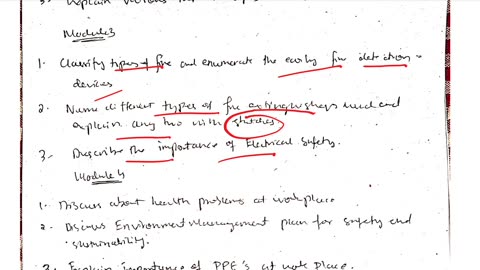 3. Explain various
Module 3
1. Classify types of fire and enumerate the early fire detection
devices
2. Name different types of fire extinguishers used and
explain any two with sketches
3. Describe the importance of Electrical Safety.
Module 4
1. Discuss about health problems at workplace
2. Discuss Environment Management plan for safety and
sustainability.
3. Explain importance of PPE's at work place.